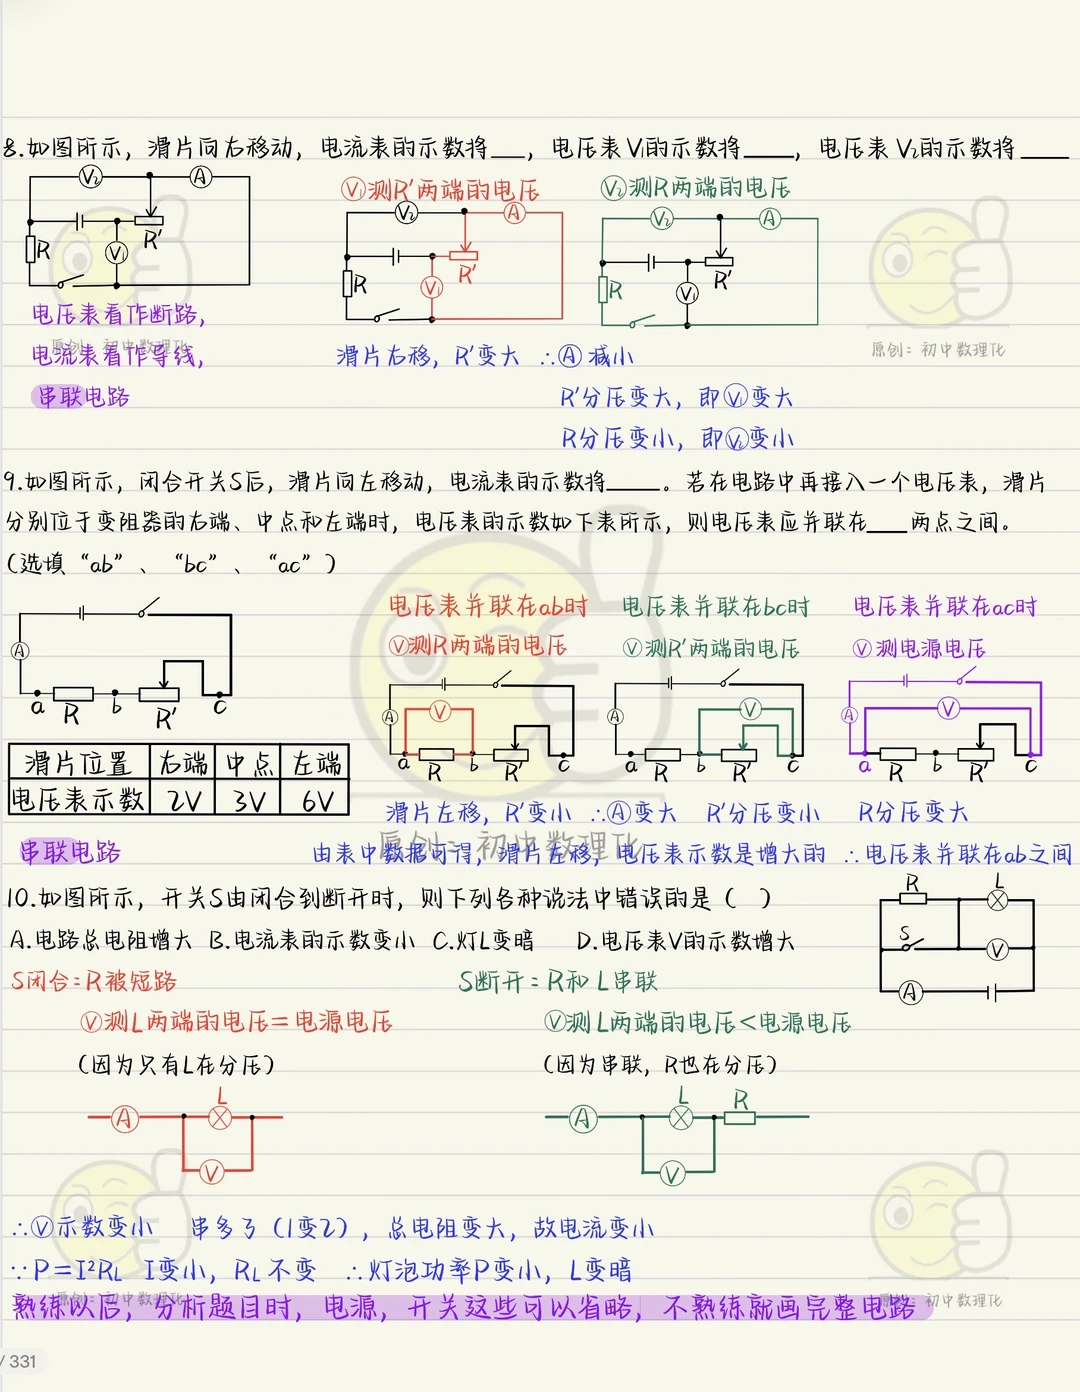 8.如图所示，滑片向右移动，电流表的示数将___，电压表V₁的示数将____，电压表V₂的示数将____
V₂ A
R V₁ R′
V₁测R′两端的电压
V₂ A
R V₁ R′
V₂测R两端的电压
V₂ A
R V₁ R′
电压表看作断路，
电流表看作导线，
串联电路
原创：初中数理化
原创：初中数理化
滑片右移，R′变大 ∴A减小
R′分压变大，即V₁变大
R分压变小，即V₂变小
9.如图所示，闭合开关S后，滑片向左移动，电流表的示数将____。若在电路中再接入一个电压表，滑片
分别位于变阻器的右端、中点和左端时，电压表的示数如下表所示，则电压表应并联在___两点之间。
(选填“ab”、“bc”、“ac”)
A
a R b R′ c
电压表并联在ab时
V测R两端的电压
V
A
a R b R′ c
电压表并联在bc时
V测R′两端的电压
V
A
a R b R′ c
电压表并联在ac时
V测电源电压
V
A
a R b R′ c
滑片位置 右端 中点 左端
电压表示数 2V 3V 6V
滑片左移，R′变小 ∴A变大 R′分压变小 R分压变大
原创：初中数理化
串联电路
由表中数据可得，滑片左移，电压表示数是增大的 ∴电压表并联在ab之间
10.如图所示，开关S由闭合到断开时，则下列各种说法中错误的是( )
A.电路总电阻增大 B.电流表的示数变小 C.灯L变暗 D.电压表V的示数增大
R L
S V
A
S闭合：R被短路
V测L两端的电压=电源电压
(因为只有L在分压)
L
A
V
S断开：R和L串联
V测L两端的电压<电源电压
(因为串联，R也在分压)
L R
A
V
∴V示数变小 串多了(1变2)，总电阻变大，故电流变小
∵P=I²RL I变小，RL不变 ∴灯泡功率P变小，L变暗
熟练以后，分析题目时，电源，开关这些可以省略，不熟练就画完整电路
原创：初中数理化
原创：初中数理化
/ 331